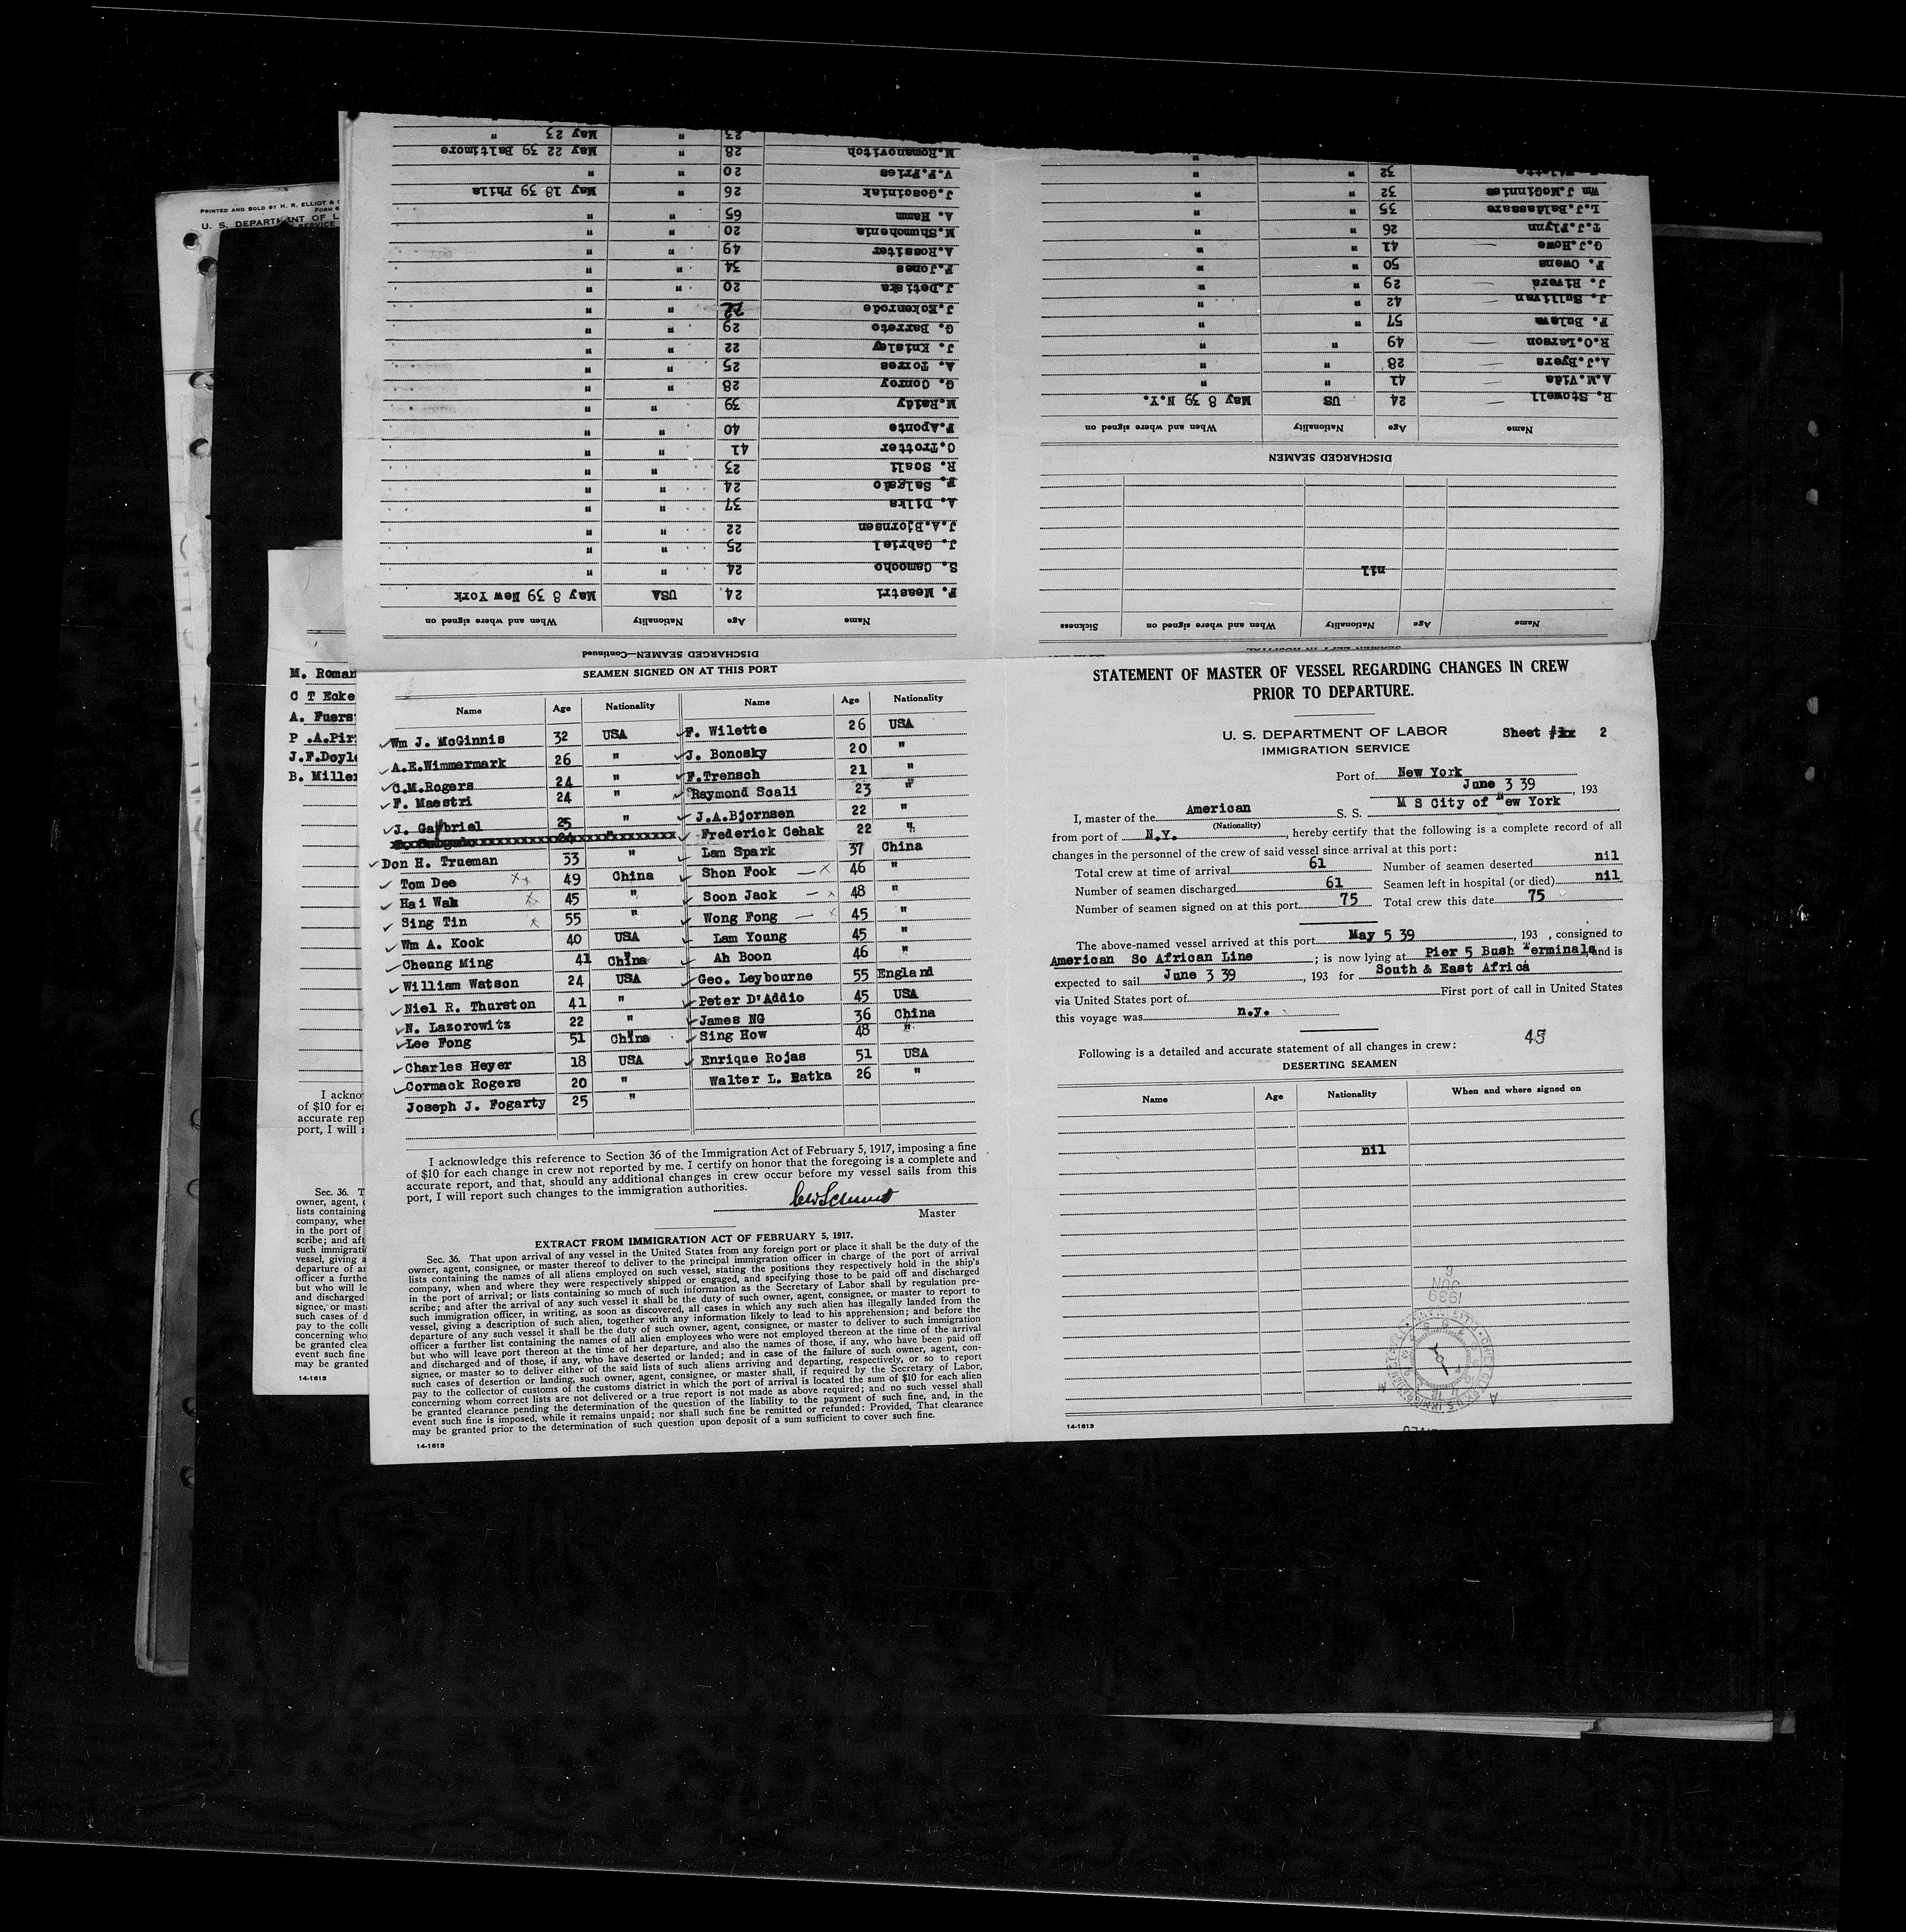 PRINTED AND SOLD BY H. R. ELLIOT &
U. S. DEPARTMENT OF L
SERVICE
M. Roman
C T Ecke
A. Fuers
P .A.Pir
J.F.Doyl
B. Miller
I ackno
of $10 for e
accurate rep
port, I will
Sec. 36. T
owner, agent,
lists containing
company, when
in the port of
scribe; and aft
such immigrati
vessel, giving a
departure of an
officer a furthe
but who will le
and discharged
signee, or mast
such cases of d
pay to the coll
concerning who
be granted clea
event such fine
may be granted
14-1613
DISCHARGED SEAMEN—Continued
Name Age Nationality When and where signed on
F. Meastri 24 USA May 8 39 New York
S. Camocho 24 " "
J. Gabriel 25 " "
J.A.Bjornsen 22 " "
A. Dilka 37 " "
F. Salgado 24 " "
R. Scali 23 " "
C.Trotter 41 " "
F.Aponte 40 " "
M.Reidy 39 " "
G. Conroy 28 " "
A. Torres 25 " "
J. Knisley 22 " "
G. Barreto 29 " "
J.Eckenrode 22 " "
J.Detiska 20 " "
F.Jones 34 " "
A.Rossiter 49 " "
M.Shumchenia 20 " "
A. Hamm 65 " "
J.Gosciniak 26 " May 18 39 Phila
V.F.Fries 20 " "
M.Romanovitch 28 " May 22 39 Baltimore
23 " May 23 "
Name Age Nationality When and where signed on Sickness
nil
DISCHARGED SEAMEN
Name Age Nationality When and where signed on
R. Stowell 24 US May 8 39 N.Y.
A.M.Vida 41 " "
A.J.Byers 28 " "
R.O.Larson 49 " "
F. Bulava 57 " "
J. Sullivan 42 " "
J. Rivera 29 " "
F. Owens 50 " "
G.J.Howe 41 " "
T.J.Flynn 26 " "
L.J.Baldassare 35 " "
Wm J.McGinniss 32 " "
32 " "
SEAMEN SIGNED ON AT THIS PORT
Name Age Nationality Name Age Nationality
Wm J. McGinnis 32 USA F. Wilette 26 USA
A.E.Wimmermark 26 " J. Bonosky 20 "
C.M.Rogers 24 " F.Trensch 21 "
F. Maestri 24 " Raymond Scali 23 "
J. Gabriel 25 " J.A.Bjornsen 22 "
Frederick Cehak 22 "
Don H. Trueman 33 " Lam Spark 37 China
Tom Dee 49 China Shon Fook 46 "
Hai Wah 45 " Soon Jack 48 "
Sing Tin 55 " Wong Fong 45 "
Wm A. Kock 40 USA Lam Young 45 "
Cheung Ming 41 China Ah Boon 46 "
William Watson 24 USA Geo. Leybourne 55 England
Niel R. Thurston 41 " Peter D'Addio 45 USA
N. Lazorowitz 22 " James NG 36 China
Lee Fong 51 China Sing How 48 "
Charles Heyer 18 USA Enrique Rojas 51 USA
Cormack Rogers 20 " Walter L. Ratka 26 "
Joseph J. Fogarty 25 "
I acknowledge this reference to Section 36 of the Immigration Act of February 5, 1917, imposing a fine
of $10 for each change in crew not reported by me. I certify on honor that the foregoing is a complete and
accurate report, and that, should any additional changes in crew occur before my vessel sails from this
port, I will report such changes to the immigration authorities.
Master
EXTRACT FROM IMMIGRATION ACT OF FEBRUARY 5, 1917.
Sec. 36. That upon arrival of any vessel in the United States from any foreign port or place it shall be the duty of the
owner, agent, consignee, or master thereof to deliver to the principal immigration officer in charge of the port of arrival
lists containing the names of all aliens employed on such vessel, stating the positions they respectively hold in the ship's
company, when and where they were respectively shipped or engaged, and specifying those to be paid off and discharged
in the port of arrival; or lists containing so much of such information as the Secretary of Labor shall by regulation pre-
scribe; and after the arrival of any such vessel it shall be the duty of such owner, agent, consignee, or master to report to
such immigration officer, in writing, as soon as discovered, all cases in which any such alien has illegally landed from the
vessel, giving a description of such alien, together with any information likely to lead to his apprehension; and before the
departure of any such vessel it shall be the duty of such owner, agent, consignee, or master to deliver to such immigration
officer a further list containing the names of all alien employees who were not employed thereon at the time of the arrival
but who will leave port thereon at the time of her departure, and also the names of those, if any, who have been paid off
and discharged and of those, if any, who have deserted or landed; and in case of the failure of such owner, agent, con-
signee, or master so to deliver either of the said lists of such aliens arriving and departing, respectively, or so to report
such cases of desertion or landing, such owner, agent, consignee, or master shall, if required by the Secretary of Labor,
pay to the collector of customs of the customs district in which the port of arrival is located the sum of $10 for each alien
concerning whom correct lists are not delivered or a true report is not made as above required; and no such vessel shall
be granted clearance pending the determination of the question of the liability to the payment of such fine, and, in the
event such fine is imposed, while it remains unpaid; nor shall such fine be remitted or refunded: Provided, That clearance
may be granted prior to the determination of such question upon deposit of a sum sufficient to cover such fine.
14-1613
STATEMENT OF MASTER OF VESSEL REGARDING CHANGES IN CREW
PRIOR TO DEPARTURE.
U. S. DEPARTMENT OF LABOR
IMMIGRATION SERVICE
Sheet # 2
Port of New York
June 3 39, 193
I, master of the American S. S. M S City of New York
(Nationality)
from port of N.Y., hereby certify that the following is a complete record of all
changes in the personnel of the crew of said vessel since arrival at this port:
Total crew at time of arrival 61 Number of seamen deserted nil
Number of seamen discharged 61 Seamen left in hospital (or died) nil
Number of seamen signed on at this port 75 Total crew this date 75
The above-named vessel arrived at this port May 5 39, 193 , consigned to
American So African Line ; is now lying at Pier 5 Bush Terminals, and is
expected to sail June 3 39, 193 for South & East Africa
via United States port of First port of call in United States
this voyage was n.y.
45
Following is a detailed and accurate statement of all changes in crew:
DESERTING SEAMEN
Name Age Nationality When and where signed on
nil
1939
JUN
6
14-1613